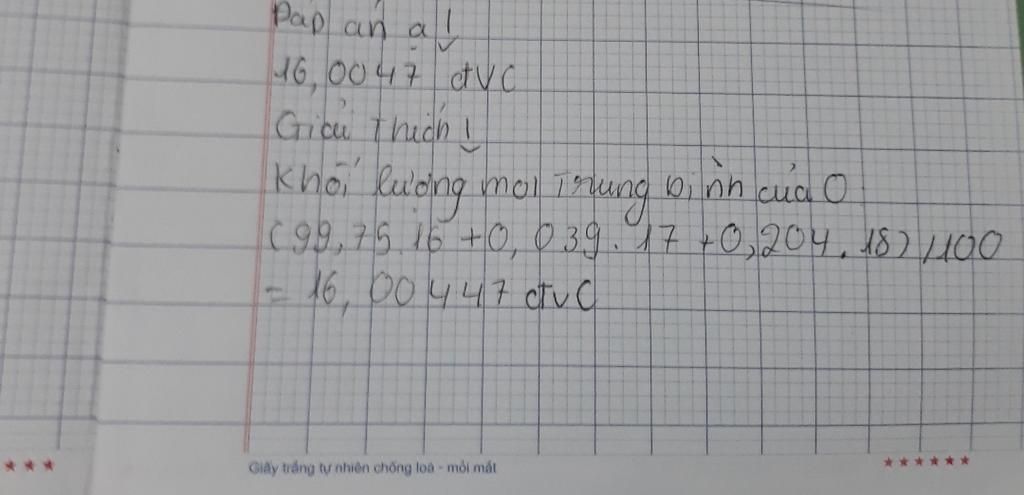 Đáp án a!
16,0047 đvC
Giải thích!
Khối lượng mol trung bình của O
(99,75.16 + 0,039.17 + 0,204.18)/100
= 16,00447 đvC
Giấy trắng tự nhiên chống loá - mỏi mắt